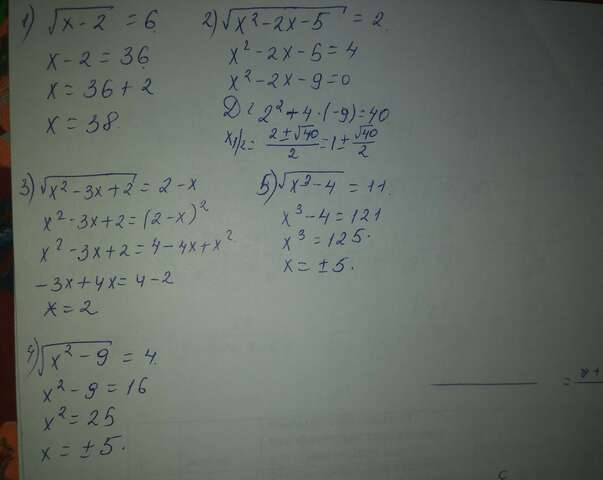 1) √(x-2) = 6
x-2 = 36
x = 36+2
x = 38.
2) √(x²-2x-5) = 2.
x²-2x-5=4
x²-2x-9=0
D = 2²+4·(-9)=40
x₁/₂ = (2±√40)/2 = 1±√40/2
3) √(x²-3x+2) = 2-x
x²-3x+2=(2-x)²
x²-3x+2=4-4x+x²
-3x+4x=4-2
x=2
5) √(x³-4) = 11.
x³-4=121
x³=125.
x=±5.
4) √(x²-9) = 4.
x²-9=16
x²=25
x=±5.